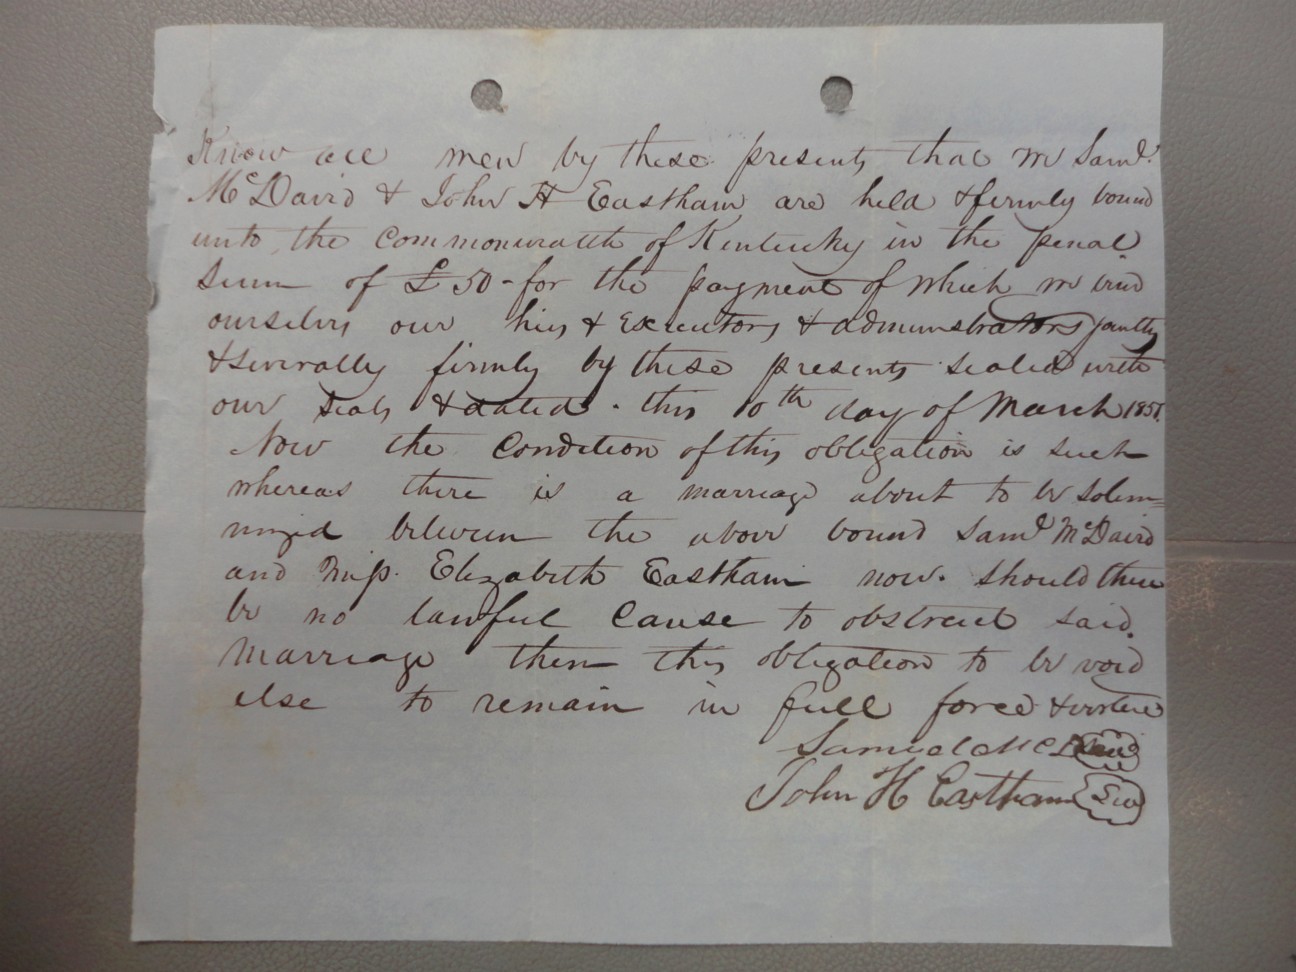 Know all men by these presents that we Saml.
McDavid & John H Eastham are held & firmly bound
unto the Commonwealth of Kentucky in the penal
Sum of £50 - for the payment of which we bind
ourselves our heirs & Executors & administrators jointly
& severally firmly by these presents sealed with
our seals & dated. this 10th day of March 1851.
Now the Condition of this obligation is such
whereas there is a marriage about to be Solem=
nized between the above bound Saml McDavid
and Miss. Elizabeth Eastham now. should there
be no lawful Cause to obstruct said.
Marriage then this obligation to be void
else to remain in full force & virtue
Samuel McDavid
John H Eastham